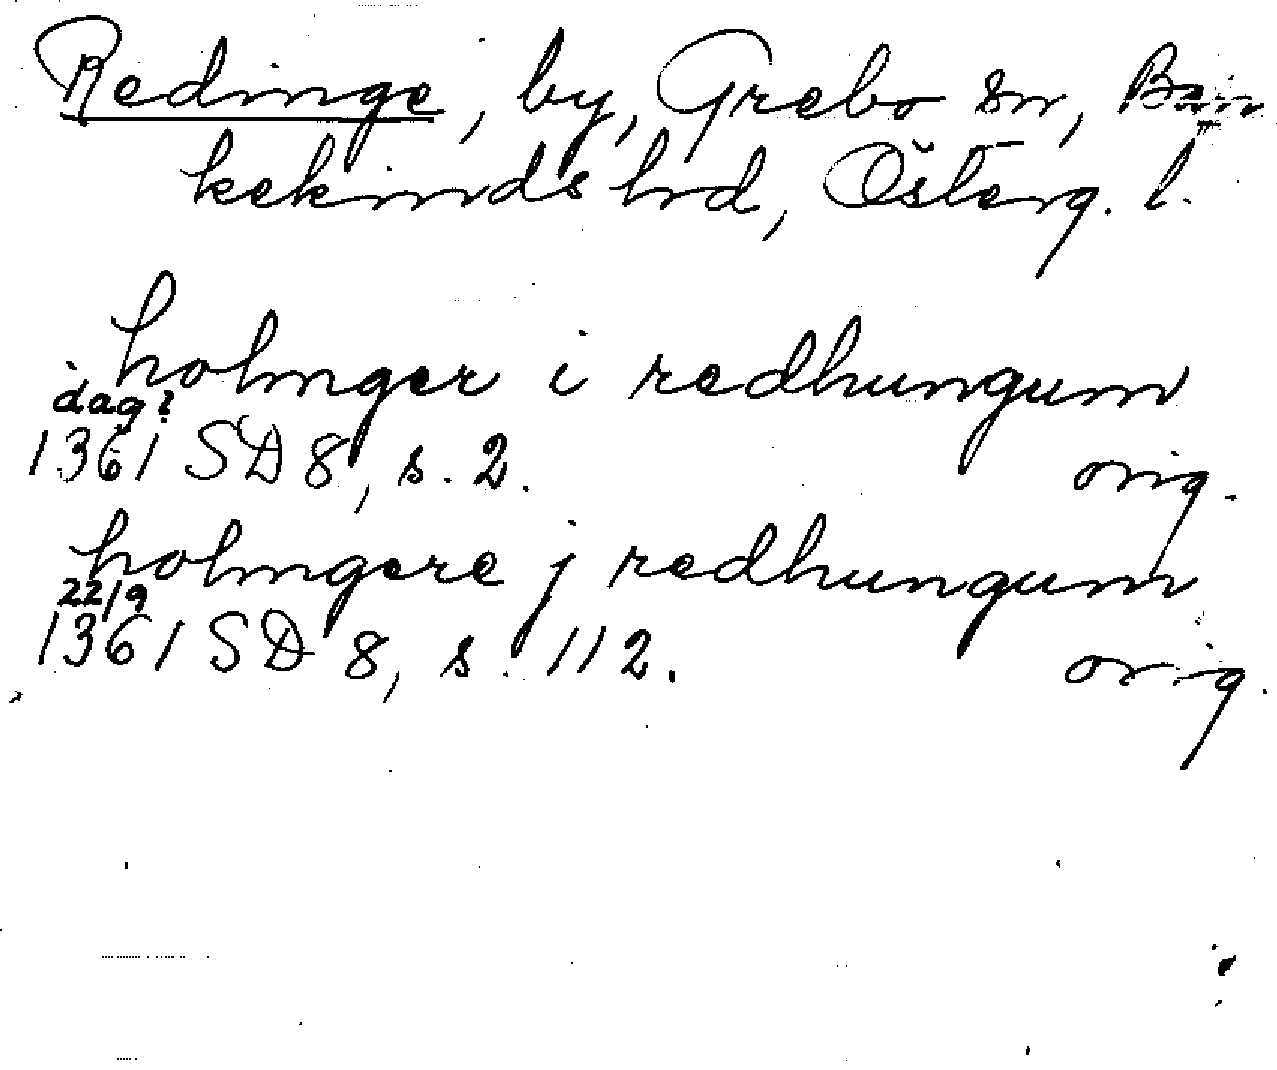 Redinge, by, Grebo sn, Ban
kekinds hd, Österg. l.
holmger i redhungum
dag?
1361 SD 8, s. 2. orig.
holmgere j redhungum
22/9
1361 SD 8, s. 112. orig.